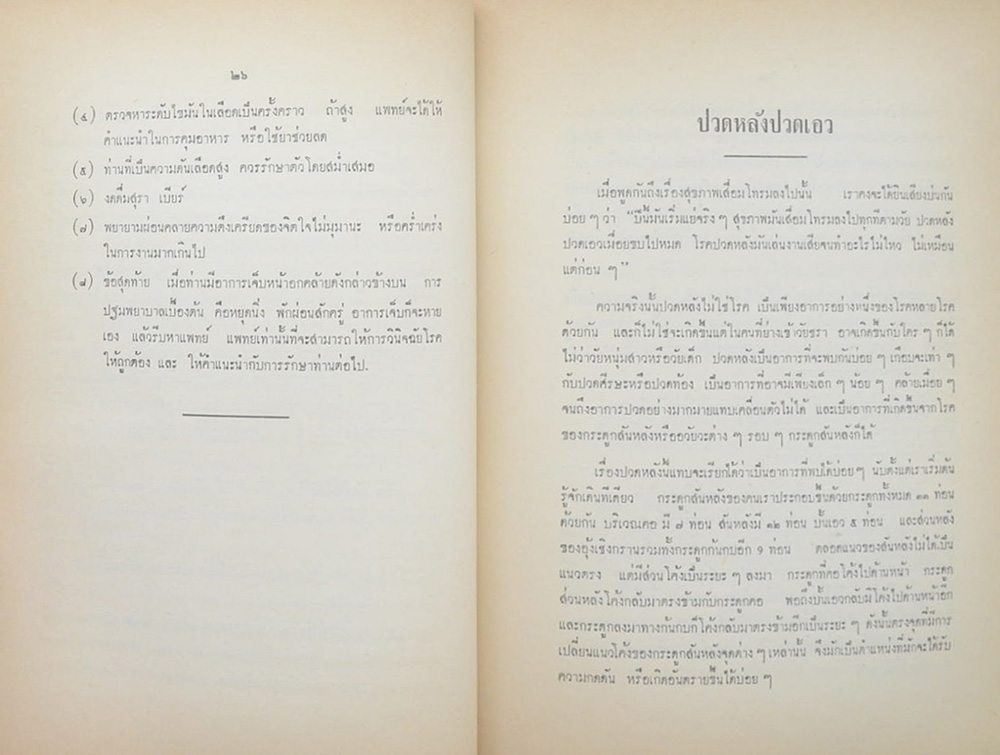 ๒๖
(๔) ตรวจหาระดับไขมันในเลือดเป็นครั้งคราว ถ้าสูง แพทย์จะได้ให้
คำแนะนำในการคุมอาหาร หรือใช้ยาช่วยลด
(๕) ท่านที่เป็นความดันเลือดสูง ควรรักษาตัวโดยสม่ำเสมอ
(๖) งดดื่มสุรา เบียร์
(๗) พยายามผ่อนคลายความตึงเครียดของจิตใจไม่มุมานะ หรือคร่ำเคร่ง
ในการงานมากเกินไป
(๘) ข้อสุดท้าย เมื่อท่านมีอาการเจ็บหน้าอกคล้ายดังกล่าวข้างบน การ
ปฐมพยาบาลเบื้องต้น คือหยุดนิ่ง พักผ่อนสักครู่ อาการเจ็บก็จะหาย
เอง แล้วรีบหาแพทย์ แพทย์เท่านั้นที่จะสามารถให้การวินิจฉัยโรค
ให้ถูกต้อง และ ให้คำแนะนำกับการรักษาท่านต่อไป.
ปวดหลังปวดเอว
เมื่อพูดกันถึงเรื่องสุขภาพเสื่อมโทรมลงไปนั้น เราคงจะได้ยินเสียงบ่นกัน
บ่อย ๆ ว่า "ปีนี้มันเริ่มแย่จริง ๆ สุขภาพมันเสื่อมโทรมลงไปทุกทีตามวัย ปวดหลัง
ปวดเอวเมื่อยขบไปหมด โรคปวดหลังมันเล่นงานเสียจนทำอะไรไม่ไหว ไม่เหมือน
แต่ก่อน ๆ"
ความจริงนั้นปวดหลังไม่ใช่โรค เป็นเพียงอาการอย่างหนึ่งของโรคหลายโรค
ด้วยกัน และก็ไม่ใช่จะเกิดขึ้นแต่ในคนที่ย่างเข้าวัยชรา อาจเกิดขึ้นกับใคร ๆ ก็ได้
ไม่ว่าวัยหนุ่มสาวหรือวัยเด็ก ปวดหลังเป็นอาการที่จะพบกันบ่อย ๆ เกือบจะเท่า ๆ
กับปวดศีรษะหรือปวดท้อง เป็นอาการที่อาจมีเพียงเล็ก ๆ น้อย ๆ คล้ายเมื่อย ๆ
จนถึงอาการปวดอย่างมากมายแทบเคลื่อนตัวไม่ได้ และเป็นอาการที่เกิดขึ้นจากโรค
ของกระดูกสันหลังหรืออวัยวะต่าง ๆ รอบ ๆ กระดูกสันหลังก็ได้
เรื่องปวดหลังนี้แทบจะเรียกได้ว่าเป็นอาการที่พบได้บ่อยๆ นับตั้งแต่เราเริ่มต้น
รู้จักเดินทีเดียว กระดูกสันหลังของคนเราประกอบขึ้นด้วยกระดูกทั้งหมด ๓๓ ท่อน
ด้วยกัน บริเวณคอ มี ๗ ท่อน สันหลังมี ๑๒ ท่อน บั้นเอว ๕ ท่อน และส่วนหลัง
ของอุ้งเชิงกรานรวมทั้งกระดูกก้นกบอีก 9 ท่อน ตลอดแนวของสันหลังไม่ได้เป็น
แนวตรง แต่มีส่วนโค้งเป็นระยะ ๆ ลงมา กระดูกที่คอโค้งไปด้านหน้า กระดูก
ส่วนหลังโค้งกลับมาตรงข้ามกับกระดูกคอ พอถึงบั้นเอวกลับมีโค้งไปด้านหน้าอีก
และกระดูกลงมาทางก้นกบก็โค้งกลับมาตรงข้ามอีกเป็นระยะ ๆ ดังนั้นตรงจุดที่มีการ
เปลี่ยนแนวโค้งของกระดูกสันหลังจุดต่าง ๆ เหล่านั้น จึงมักเป็นตำแหน่งที่มักจะได้รับ
ความกดดัน หรือเกิดอันตรายขึ้นได้บ่อย ๆ